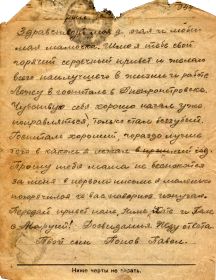 Здравствуй моя дорогая и люби-
мая мамочка. Шлю я тебе свой
горячий сердечный привет и желаю
всего наилучшего в жизни и работе
Лежу в госпитале в Днепропетровске.
Чувствую себя хорошо начал уже
поправляться, только стал беззубый.
Госпиталь хороший, гораздо лучше
того в каком я лежал в прошлый год.
Прошу тебя мама не беспокойся
за меня я первом письме я маленько
погорячился
Передай привет папе,
и Марусе! Досвидания Жду ответа
Твой сын Попов Павел.
Ниже черты не писать.